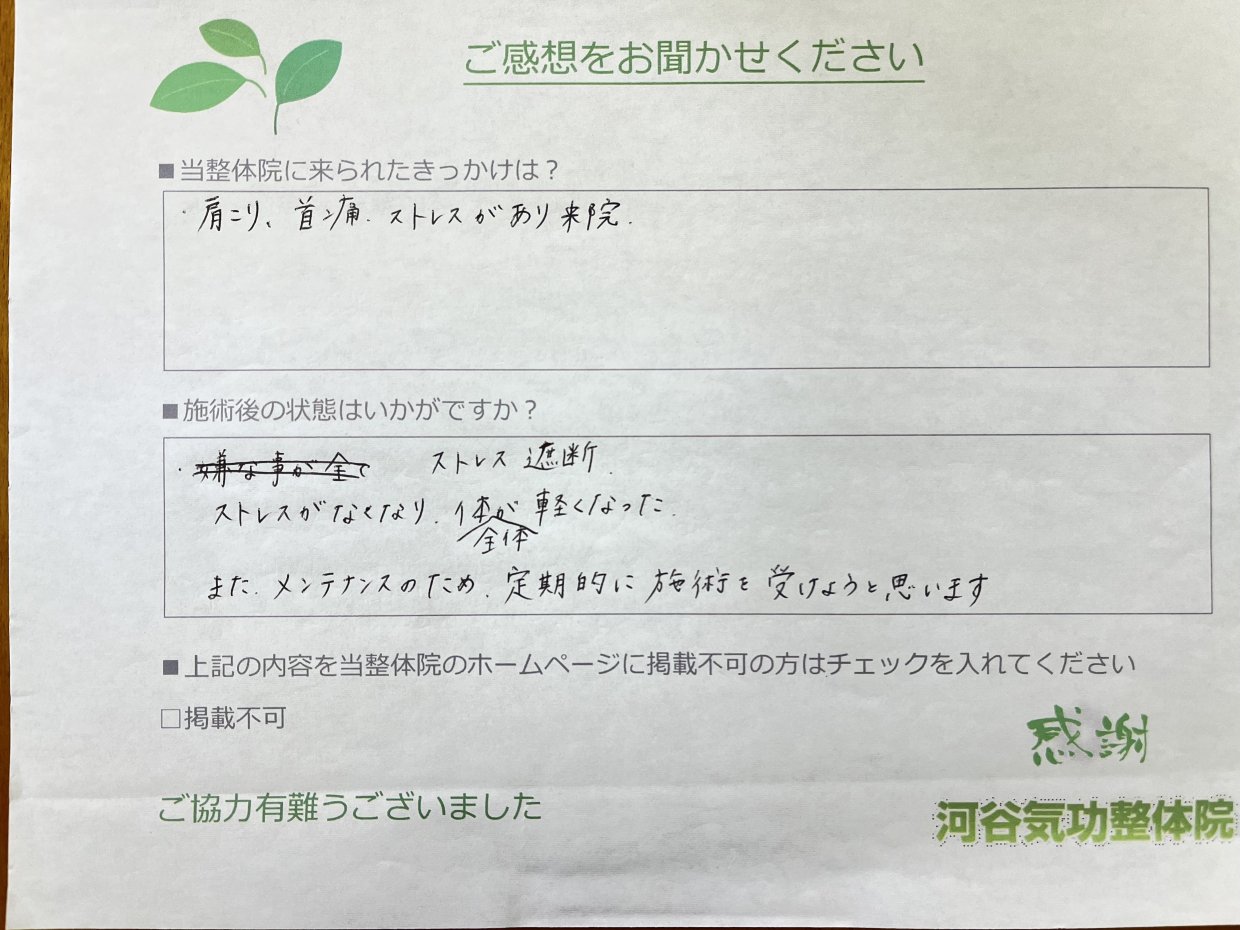 ご感想をお聞かせください
■当整体院に来られたきっかけは？
・肩こり、首痛、ストレスがあり来院.
■施術後の状態はいかがですか？
・嫌な事が全て ストレス遮断.
ストレスがなくなり、体が軽くなった.
全体
また、メンテナンスのため、定期的に施術を受けようと思います
■上記の内容を当整体院のホームページに掲載不可の方はチェックを入れてください
□掲載不可
感謝
ご協力有難うございました
河谷気功整体院